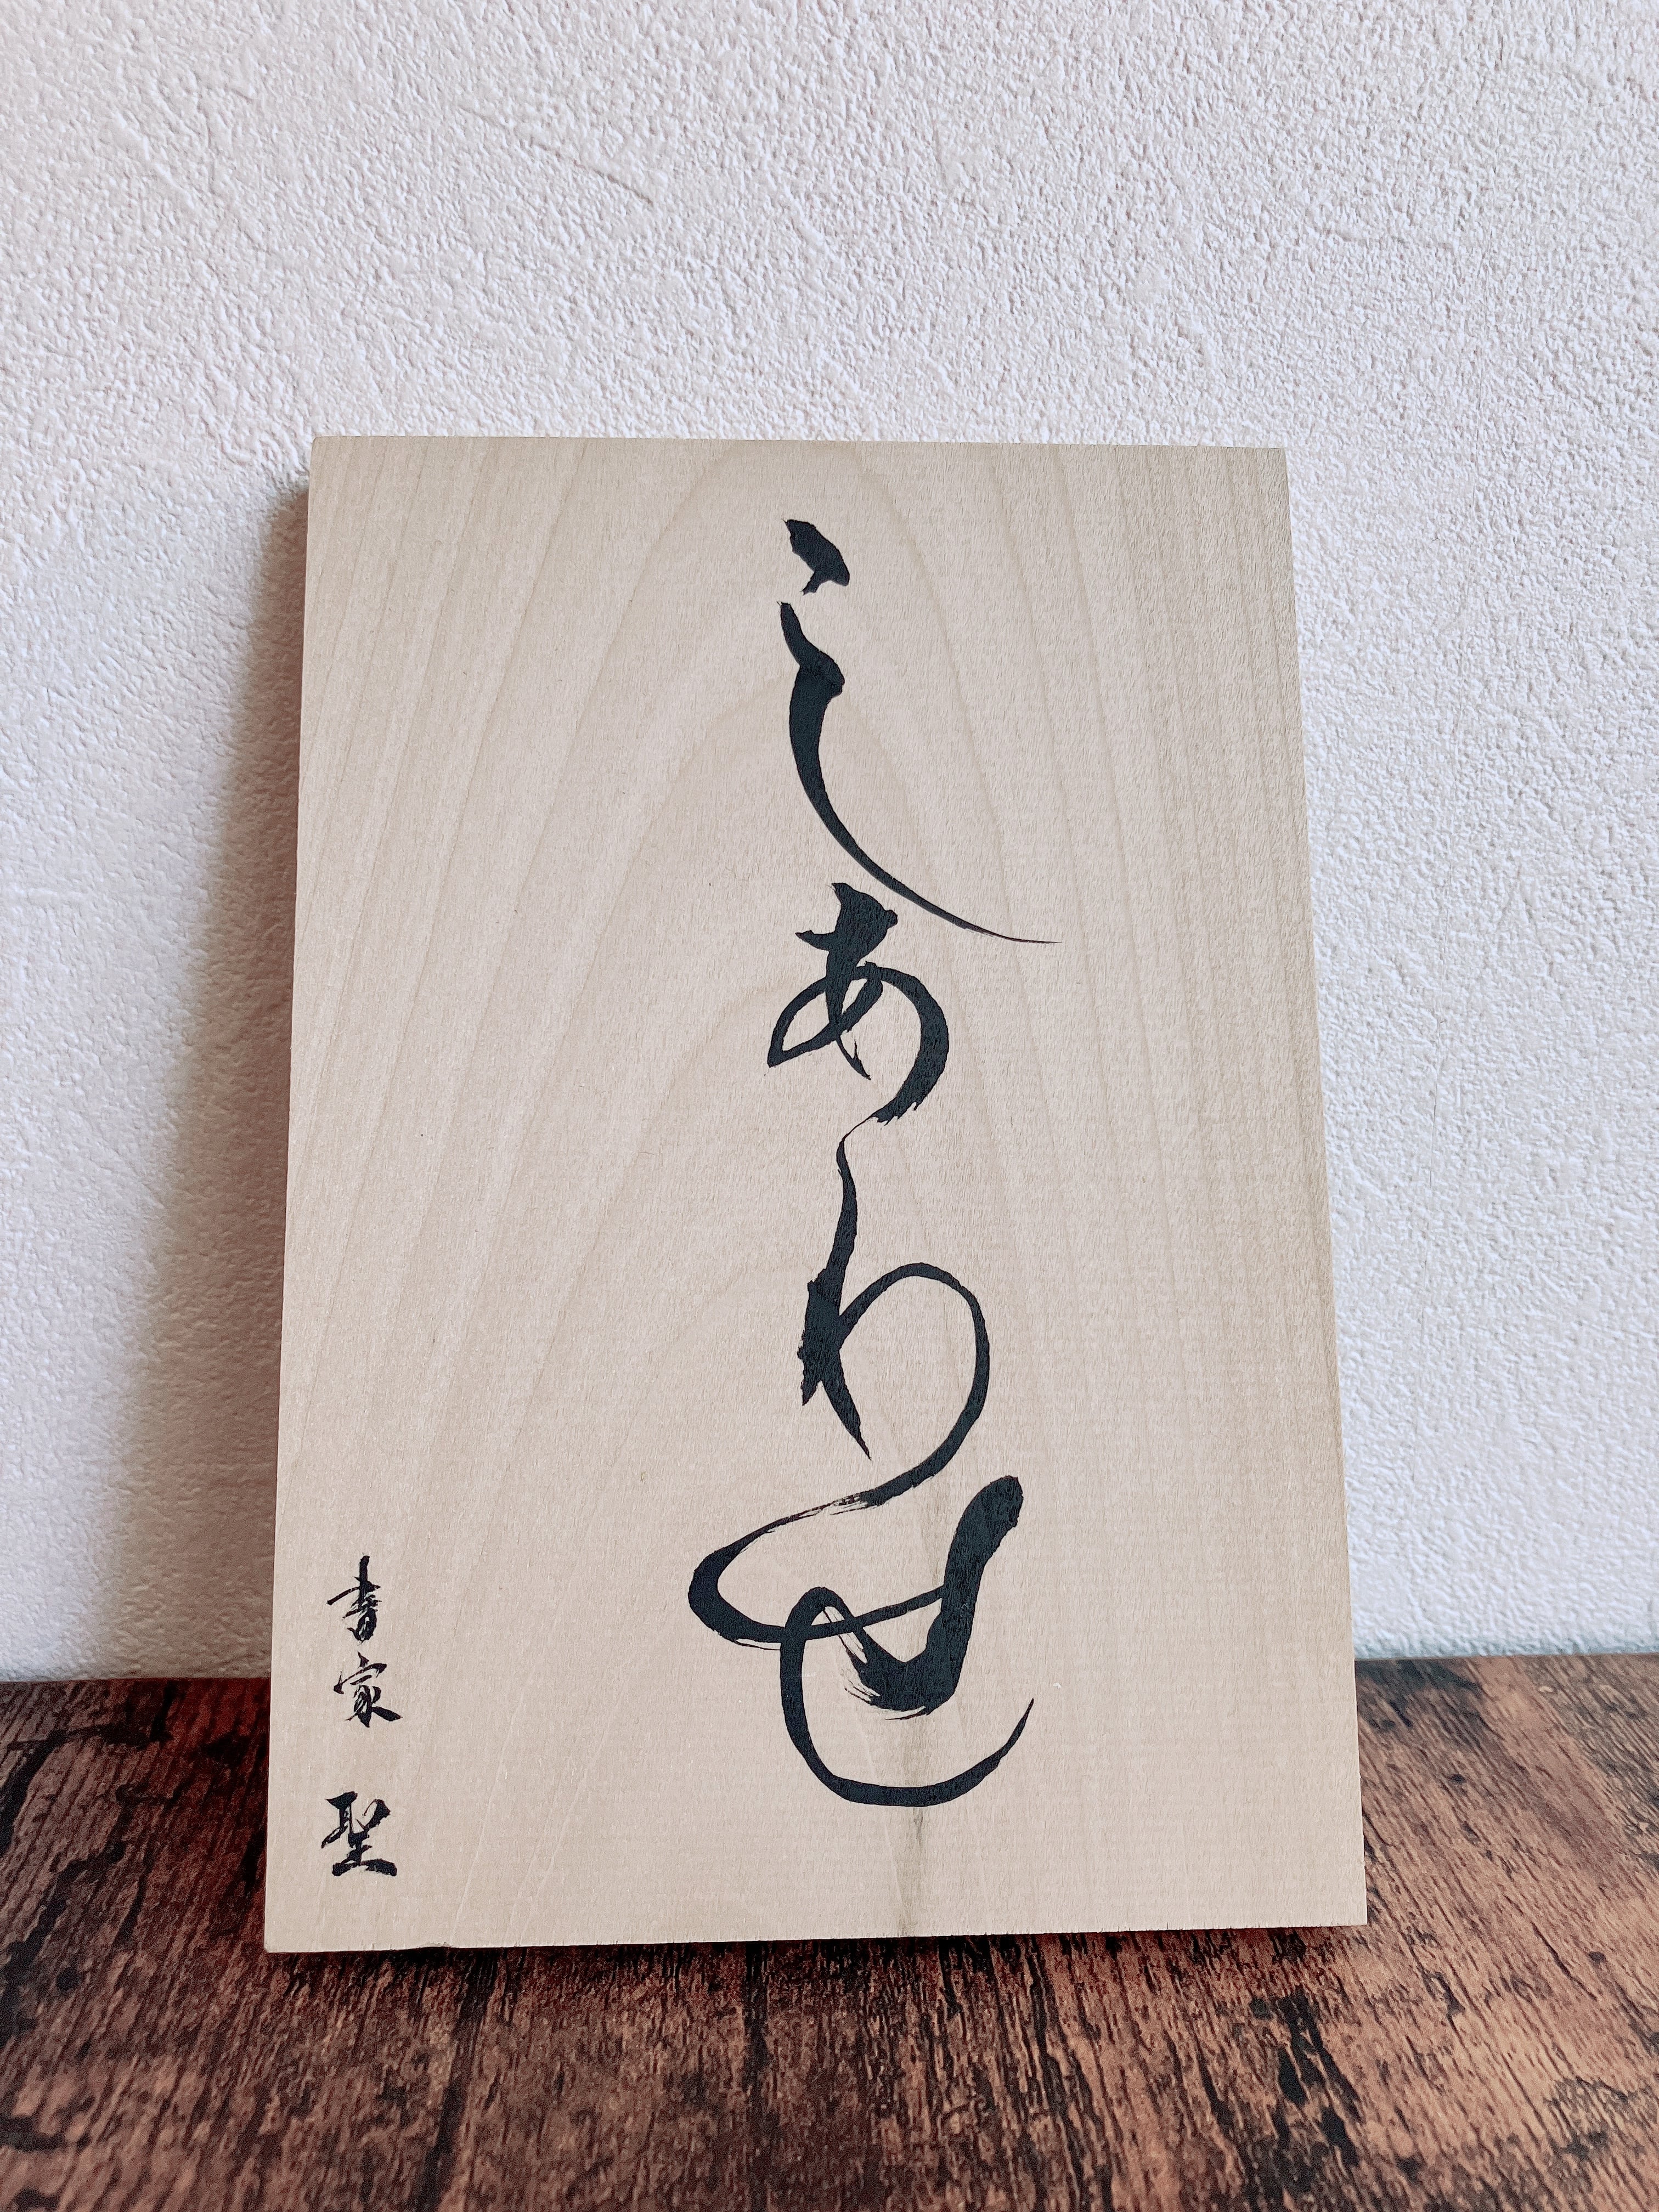 しあわせ
書家 聖